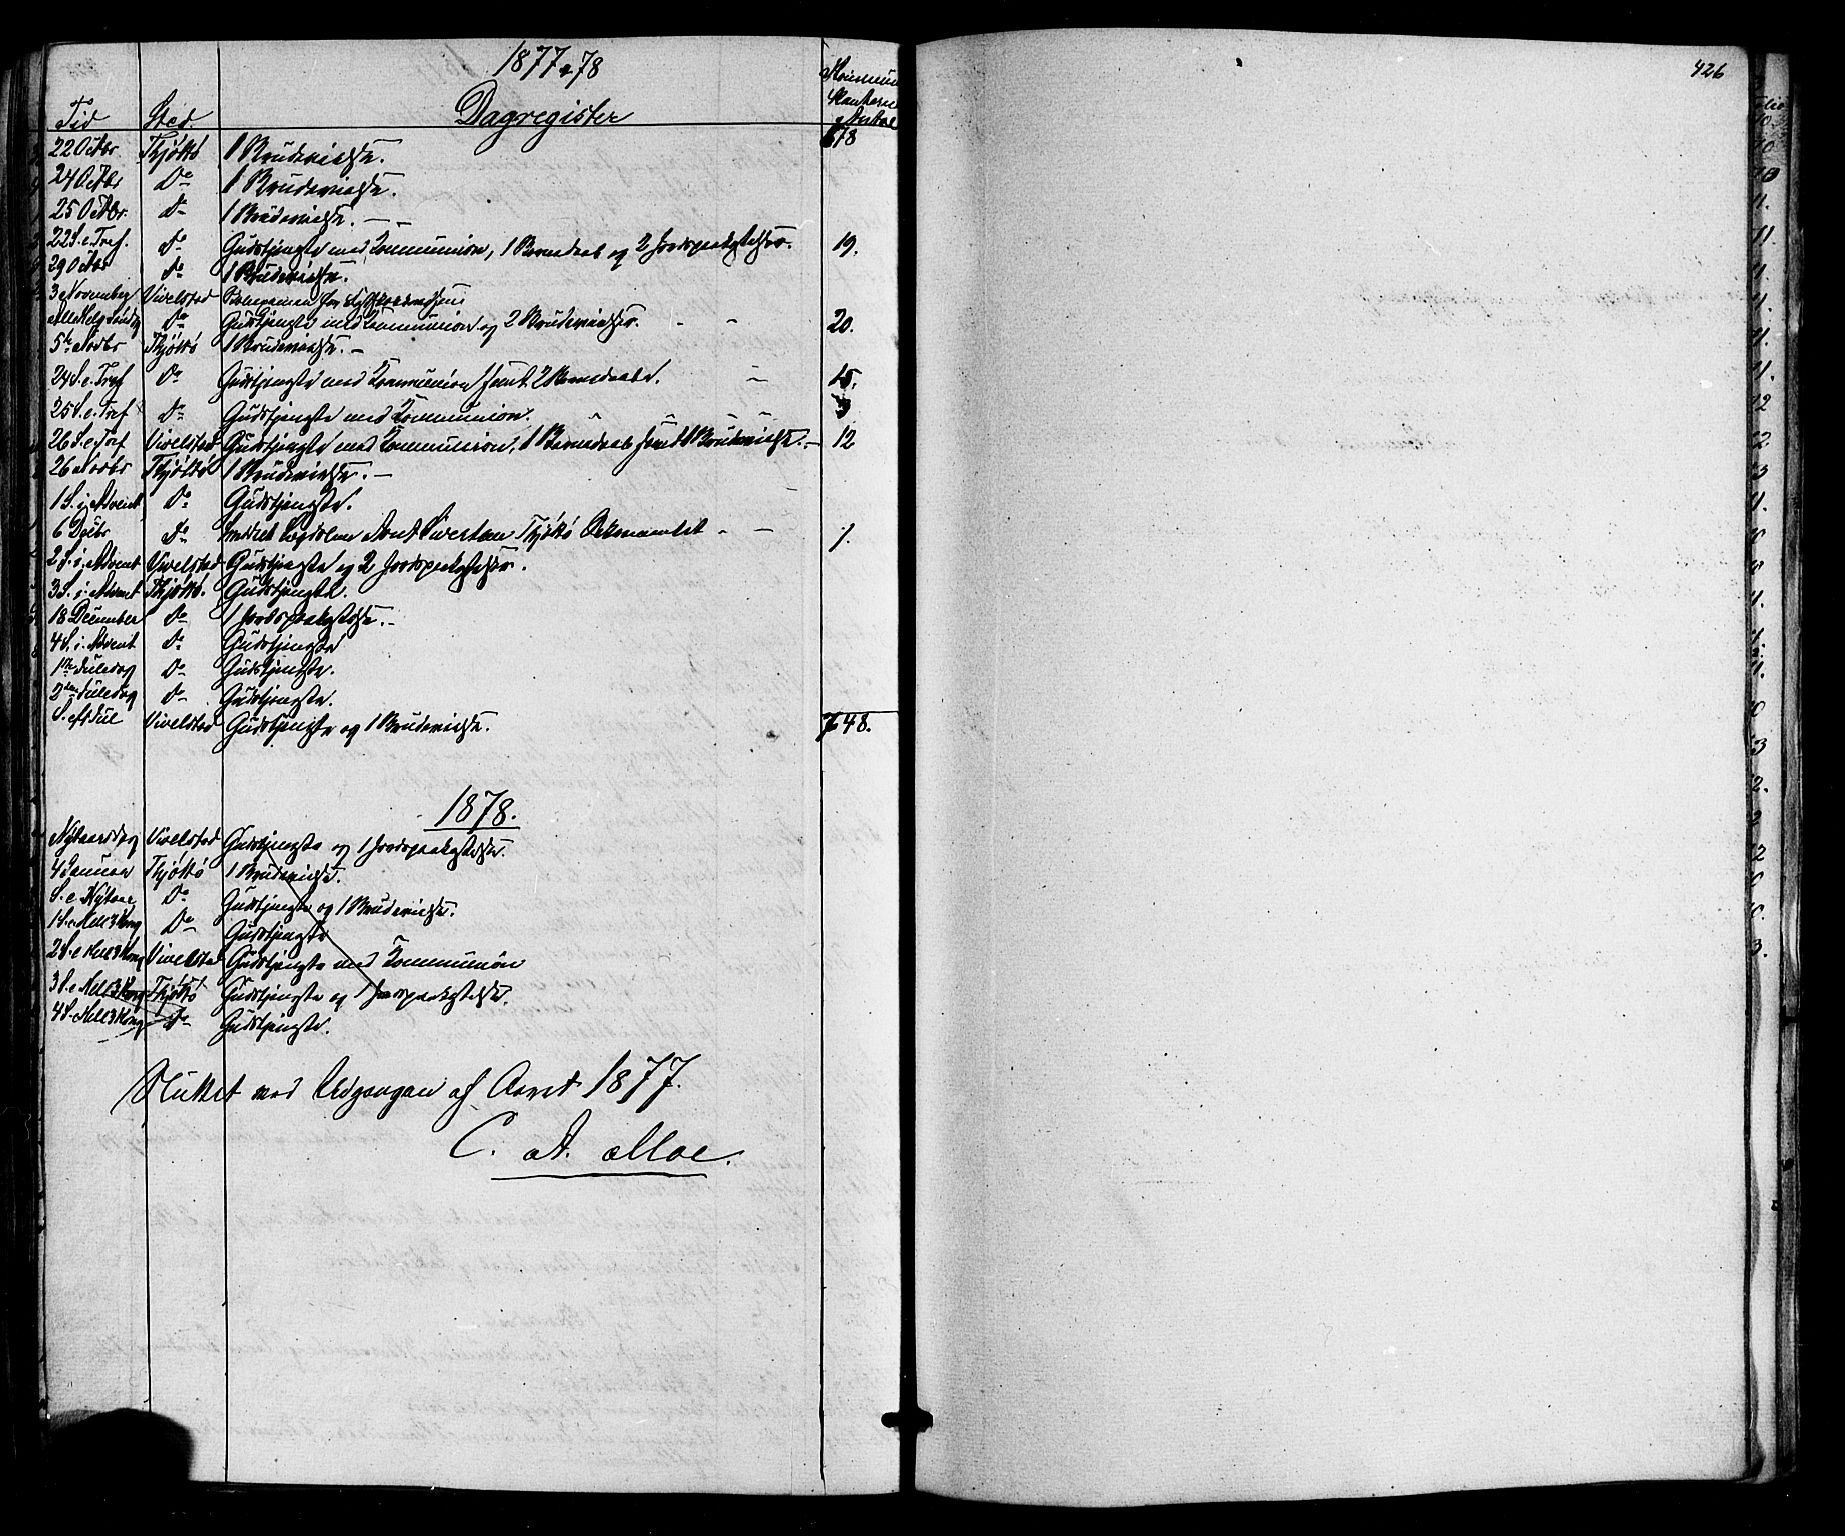 1877 & 78
Tid Sted. Dagregister Kommunikanternes Antal
22 Octbr Thjøttø 1 Brudevielse. 678
24 Octbr Do 1 Brudevielse.
25 Octbr. Do 1 Brudevielse. — —
22 S. e. Tref. Do Gudstjeneste med Kommunion, 1 Barnedaab og 2 Jordspaakastelser. 19.
29 Octbr Do 1 Brudevielse.
3 November Vivelstad
Alle Helg. Søndag Do Gudstjeneste med Kommunion og 2 Brudevielser. - - 20.
5te Novbr Thjøttø 1 Brudevielse. —
24 S. e. Tref Do Gudstjeneste med Kommunion samt 2 Barnedaabe. — 15.
25 S. e. Tref Do Gudstjeneste med Kommunion. 3
26 S. e. Tref Vivelstad Gudstjeneste med Kommunion, 1 Barnedaab samt 1 Brudevielse. — 12
26 Novbr Thjøttø 1 Brudevielse. —
1 S. i Advent Do Gudstjeneste.
6 Decbr Do Sivertsen Thjøttø - — 1.
2 S. i. Advent Vivelstad Gudstjeneste og 2 Jordspaakastelser.
3 S. i. Advent Thjøttø. Gudstjeneste.
18 December Do 1 Jordspaakastelse. —
4 S. i. Advent Do Gudstjeneste
1ste Juledag Do Gudstjeneste.
2den Juledag Do Gudstjeneste.
S. e. Jul Vivelstad Gudstjeneste og 1 Brudevielse. 748.
1878.
Nytaarsdag Vivelstad Gudstjeneste og 1 Jordspaakastelse.
4 Januar Thjøttø 1 Brudevielse.
S. e. Nytaar Do Gudstjeneste og 1 Brudevielse.
1 S. e. Hell 3 Kong Do Gudstjeneste
2 S. e. Hell 3 Kong Vivelstad Gudstjeneste med Kommunion
3 S. e. Hell 3 Kong Thjøttø Gudstjeneste og 1 Jordspaakastelse.
4 S. Hell 3 Kong Do Gudstjeneste.
Sluttet ved Udgangen af Aaret 1877.
C. A. Moe.
426